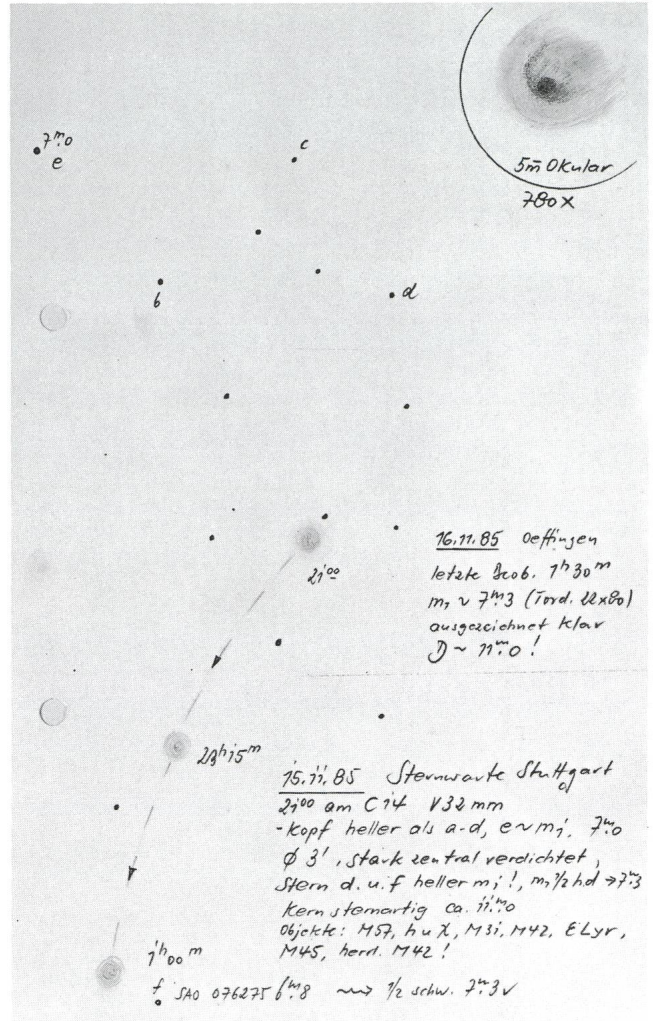 7ᵐ.0
e
c
5m Okular
780x
b
d
21ʰ⁰⁰
16.11.85 Oeffingen
letzte Beob. 1ʰ30ᵐ
m₁ ~ 7ᵐ.3 (Tord. 22x80)
ausgezeichnet klar
D ~ 11ᵐ.0 !
23ʰ15ᵐ
15.11.85 Sternwarte Stuttgart
21⁰⁰ am C14 V32mm
- Kopf heller als a-d, e ~ m₁, 7ᵐ.0
Ø 3', stark zentral verdichtet,
Stern d. u. f heller m₁!, m₁ 1/2 h.d → 7ᵐ.3
Kern sternartig ca. 11ᵐ.0
Objekte: M57, h u χ, M31, M42, ε Lyr,
M45, herrl. M42 !
1ʰ00ᵐ
f SAO 076275 6ᵐ.8 ⟿ 1/2 schw. 7ᵐ.3 v